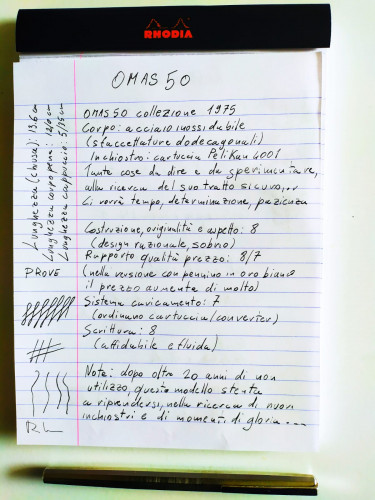 RHODIA
OMAS 50
OMAS 50 collezione 1975
Corpo: acciaio inossidabile
(staccettature dodecagonali)
Inchiostro: cartuccia Pelikan 4001
Tante cose da dire e da sperimentare,
alla ricerca del suo tratto sicuro...
Ci vorrà tempo, determinazione, pazienza
Costruzione, originalità e aspetto: 8
(design razionale, sobrio)
Rapporto qualità prezzo: 8/7
(nella versione con pennino in oro bianco
il prezzo aumenta di molto)
Sistema caricamento: 7
(ordinario cartuccia/converter)
Scrittura: 8
(affidabile e fluida)
Note: dopo oltre 20 anni di non
utilizzo, questo modello stenta
a riprendersi, nella ricerca di nuovi
inchiostri e di momenti di gloria....
Lunghezza (chiusa): 13.6 cm
Lunghezza corpo penna:
Lunghezza cappuccio:
PROVE